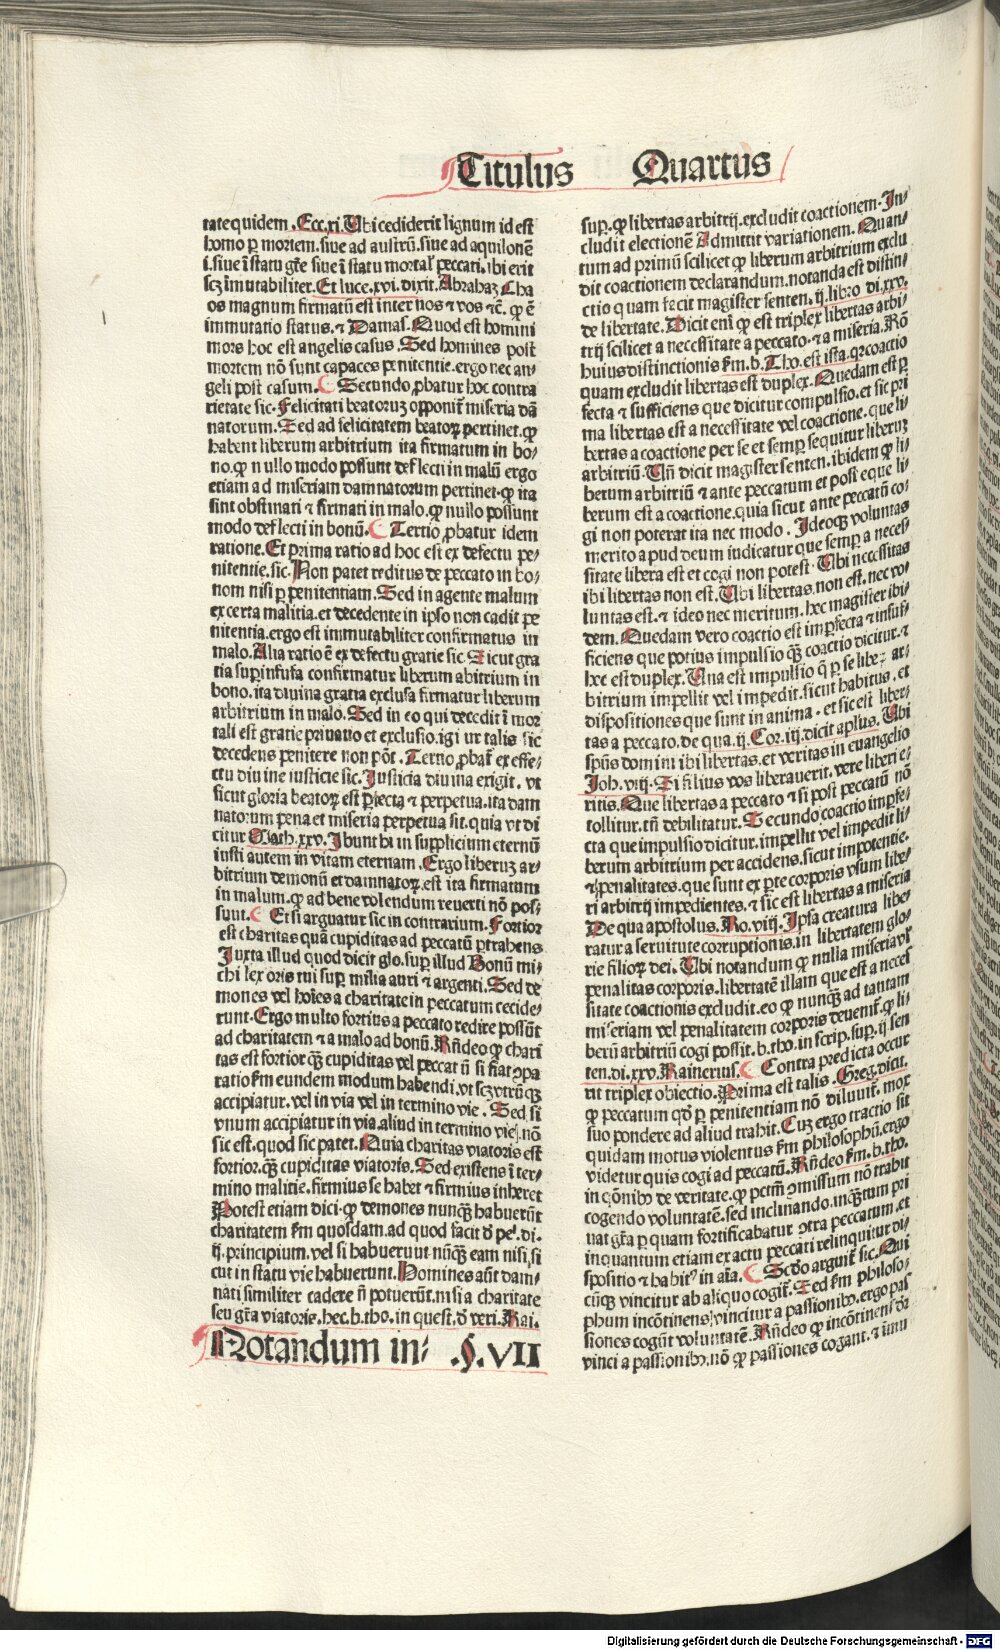 Titulus Quartus
tate quidem. Ecc. xi. Ubi ceciderit lignum id est
homo ꝑ mortem. siue ad austrū. siue ad aquilonē
i. siue ī statu gr̄e siue ī statu mortal' peccati. ibi erit
scꝫ īmutabiliter. Et luce. xvi. dixit. Abrahaꝫ Cha
os magnum firmatū est inter nos ⁊ vos ⁊c̄. ꝙ ē
immutatio status. ⁊ Damas̄. Quod est homini
mors hoc est angelis casus. Sed homines post
mortem nō sunt capaces penitentie. ergo nec an⸗
geli post casum. Secundo ꝓbatur hoc contra
rietate sic. Felicitati beatoruꝫ opponit̄ miseria dā
natorum. Sed ad felicitatem beatoꝝ pertinet. ꝙ
habent liberum arbitrium ita firmatum in bo⸗
no. ꝙ nullo modo possunt deflecti in malū ergo
etiam ad miseriam damnatorum pertinet. ꝙ ita
sint obstinati ⁊ firmati in malo. ꝙ nullo possunt
modo deflecti in bonū. Tertio ꝓbatur idem
ratione. Et prima ratio ad hoc est ex defectu pe⸗
nitentie. sic. Non patet reditus de peccato in bo⸗
nom nisi ꝑ penitentiam. Sed in agente malum
ex certa malitia. et decedente in ipso non cadit pe
nitentia. ergo est immutabiliter confirmatus in
malo. Alia ratio ē ex defectu gratie sic. Sicut gra
tia suꝑinfusa confirmatur liberum abitrium in
bono. ita diuina gratia exclusa firmatur liberum
arbitrium in malo. Sed in eo qui decedit ī mor
tali est gratie priuatio et exclusio. igitur talis sic
decedens penitere non pōt. Tertio ꝓbat̄ ex effe⸗
ctu diuine iusticie sic. Justicia diuina exigit. vt
sicut gloria beatoꝝ est ꝑfecta ⁊ perpetua. ita dam
natorum pena et miseria perpetua sit. quia vt di
citur Math. xxv. Ibunt hi in supplicium eternū
iusti autem in vitam eternam. Ergo liberuꝫ ar⸗
bitrium demonū et damnatoꝝ. est ita firmatum
in malum. ꝙ ad bene volendum reuerti nō pos⸗
sunt. Et si arguatur sic in contrarium. Fortior
est charitas quā cupiditas ad peccatū ꝑtrahens
Juxta illud quod dicit glo. suꝑ illud Bonū mi⸗
chi lex oris tui suꝑ milia auri ⁊ argenti. Sed de
mones vel hoīes a charitate in peccatum cecide⸗
runt. Ergo multo fortius a peccato redire possūt
ad charitatem ⁊ a malo ad bonū. Rn̄deo ꝙ chari
tas est fortior qꝫ cupiditas vel peccatū si fiat ꝯpa
ratio fm̄ eundem modum habendi. vt scꝫ vtrūqꝫ
accipiatur. vel in via vel in termino vie. Sed si
vnum accipiatur in via. aliud in termino vie. nō
sic est. quod sic patet. Quia charitas viatoris est
fortior. qꝫ cupiditas viatoris. Sed existens ī ter⸗
mino malitie. firmius se habet ⁊ firmius inheret
Potest etiam dici. ꝙ demones nunqꝫ habuerūt
charitatem fm̄ quosdam. ad quod facit d̄ pe'. di.
ij. principium. vel si habuerunt nūqꝫ eam nisi si
cut in statu vie habuerunt. Homines aūt dam⸗
nati similiter cadere n̄ potuerūt. nisi a charitate
seu gr̄a viatorie. hec. b. tho. in quest. d̄ veri. Rai.
Notandum in⸗ .§. VII
suꝑ. ꝙ libertas arbitrij. excludit coactionem. In⸗
cludit electionē Admittit variationem. Quan⸗
tum ad primū scilicet ꝙ liberum arbitrium exclu
dit coactionem declarandum. notanda est distin⸗
ctio quam facit magister senten. ij. libro di. xxv.
de libertate. Dicit enī ꝙ est triplex libertas arbi⸗
trij scilicet a necessitate a peccato. ⁊ a miseria. Rō
huius distinctionis fm̄. b. Tho. est ista. qꝛ coactio
quam excludit libertas est duplex. Quedam est ꝑ
fecta ⁊ sufficiens que dicitur compulsio. et sic pri
ma libertas est a necessitate vel coactione. que li⸗
bertas a coactione per se et semꝑ sequitur liberuꝫ
arbitriū. Vn̄ dicit magister senten. ibidem ꝙ li⸗
berum arbitriū ⁊ ante peccatum et post eque li⸗
berum est a coactione. quia sicut ante peccatū co⸗
gi non poterat ita nec modo. Ideoqꝫ voluntas
merito apud deum iudicatur que semꝑ a neces⸗
sitate libera est et cogi non potest. Ubi necessitas
ibi libertas non est. Ubi libertas. non est. nec vo⸗
luntas est. ⁊ ideo nec meritum. hec magister ibi⸗
dem. Quedam vero coactio est imꝑfecta ⁊ insuf⸗
ficiens que potius impulsio qꝫ coactio dicitur. ⁊
hec est duplex. Una est impulsio q̄ ꝑ se libeꝝ ar⸗
bitrium impellit vel impedit. sicut habitus. et
dispositiones que sunt in anima. et sic est liber⸗
tas a peccato. de qua. ij. Cor. iij. dicit aplus. Ubi
spūs domini ibi libertas. et veritas in euangelio
Joh. viij. Si filius vos liberauerit. vere liberi e⸗
ritis. Que libertas a peccato ⁊ si post peccatū nō
tollitur. tn̄ debilitatur. Secundo coactio imꝑfe⸗
cta que impulsio dicitur. impellit vel impedit li⸗
berum arbitrium per accidens. sicut impotentie.
⁊ penalitates. que sunt ex ꝑte corporis vsum libe⸗
ri arbitrij impedientes. ⁊ sic est libertas a miseria
De qua apostolus. Ro. viij. Ipsa creatura libe⸗
ratur a seruitute corruptionis. in libertatem glo⸗
rie filioꝝ dei. Ubi notandum ꝙ nulla miseria vl'
penalitas corporis. libertatē illam que est a necess
sitate coactionis excludit. eo ꝙ nunqꝫ ad tantam
miseriam vel penalitatem corporis deuenit̄. ꝙ li⸗
berū arbitriū cogi possit. b. tho. in scrip. sup. ij sen
ten. di. xxv. Rainerius. Contra predicta occur
rit triplex obiectio. Prima est talis. Greg. dicit.
ꝙ peccatum qd̄ ꝑ penitentiam nō diluit̄. mox
suo pondere ad aliud trahit. Cuꝫ ergo tractio sit
quidam motus violentus fm̄ philosophū. ergo
videtur quis cogi ad peccatū. Rn̄deo fm̄. b. tho.
in q̄onibꝰ de veritate. ꝙ pctm̄ ꝯmissum nō trahit
cogendo voluntatē. sed inclinando. inqꝫtum pri
uat gr̄a ꝑ quam fortificabatur ꝯtra peccatum. et
inquantum etiam ex actu peccati relinquitur di⸗
spositio ⁊ habitꝰ in aīa. Scd̄o arguit̄ sic. Qui
cūqꝫ vincitur ab aliquo cogit̄. Sed fm̄ philoso⸗
phum incōtinens vincitur a passionibꝰ. ergo pas
siones cogūt voluntatē. Rn̄deo ꝙ incōtinens dr̄
vinci a passionibꝰ. nō ꝙ passiones cogant. ⁊ īmu
Digitalisierung gefördert durch die Deutsche Forschungsgemeinschaft - DFG